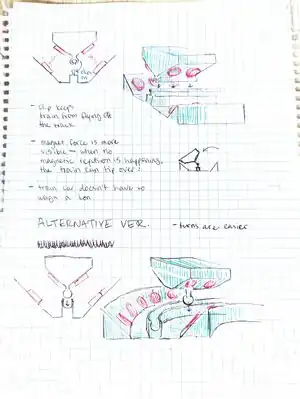 - clip keeps
train from flying off
the track
- magnet force is more
visible - when no
magnetic repulsion is happening,
the train can tip over!
- train car doesn't have to
weigh a ton
ALTERNATIVE VER.
- turns are easier